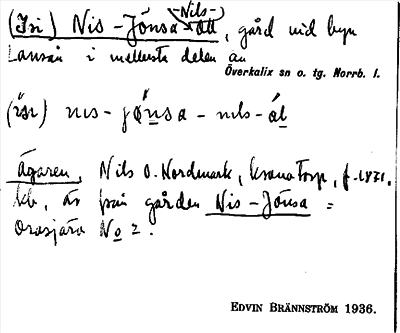 (Isi) Nis-Jönsa-Nils-ått, gård vid byn
Lansån i mellersta delen av
Överkalix sn o. tg. Norrb. l.
nɩs- jǿnsa - nɩls-åt
Ägaren, Nils O. Nordmark, kronotorp, f. 1871,
kb, är från gården Nis-Jönsa =
Orasjärv No 2.
EDVIN BRÄNNSTRÖM 1936.